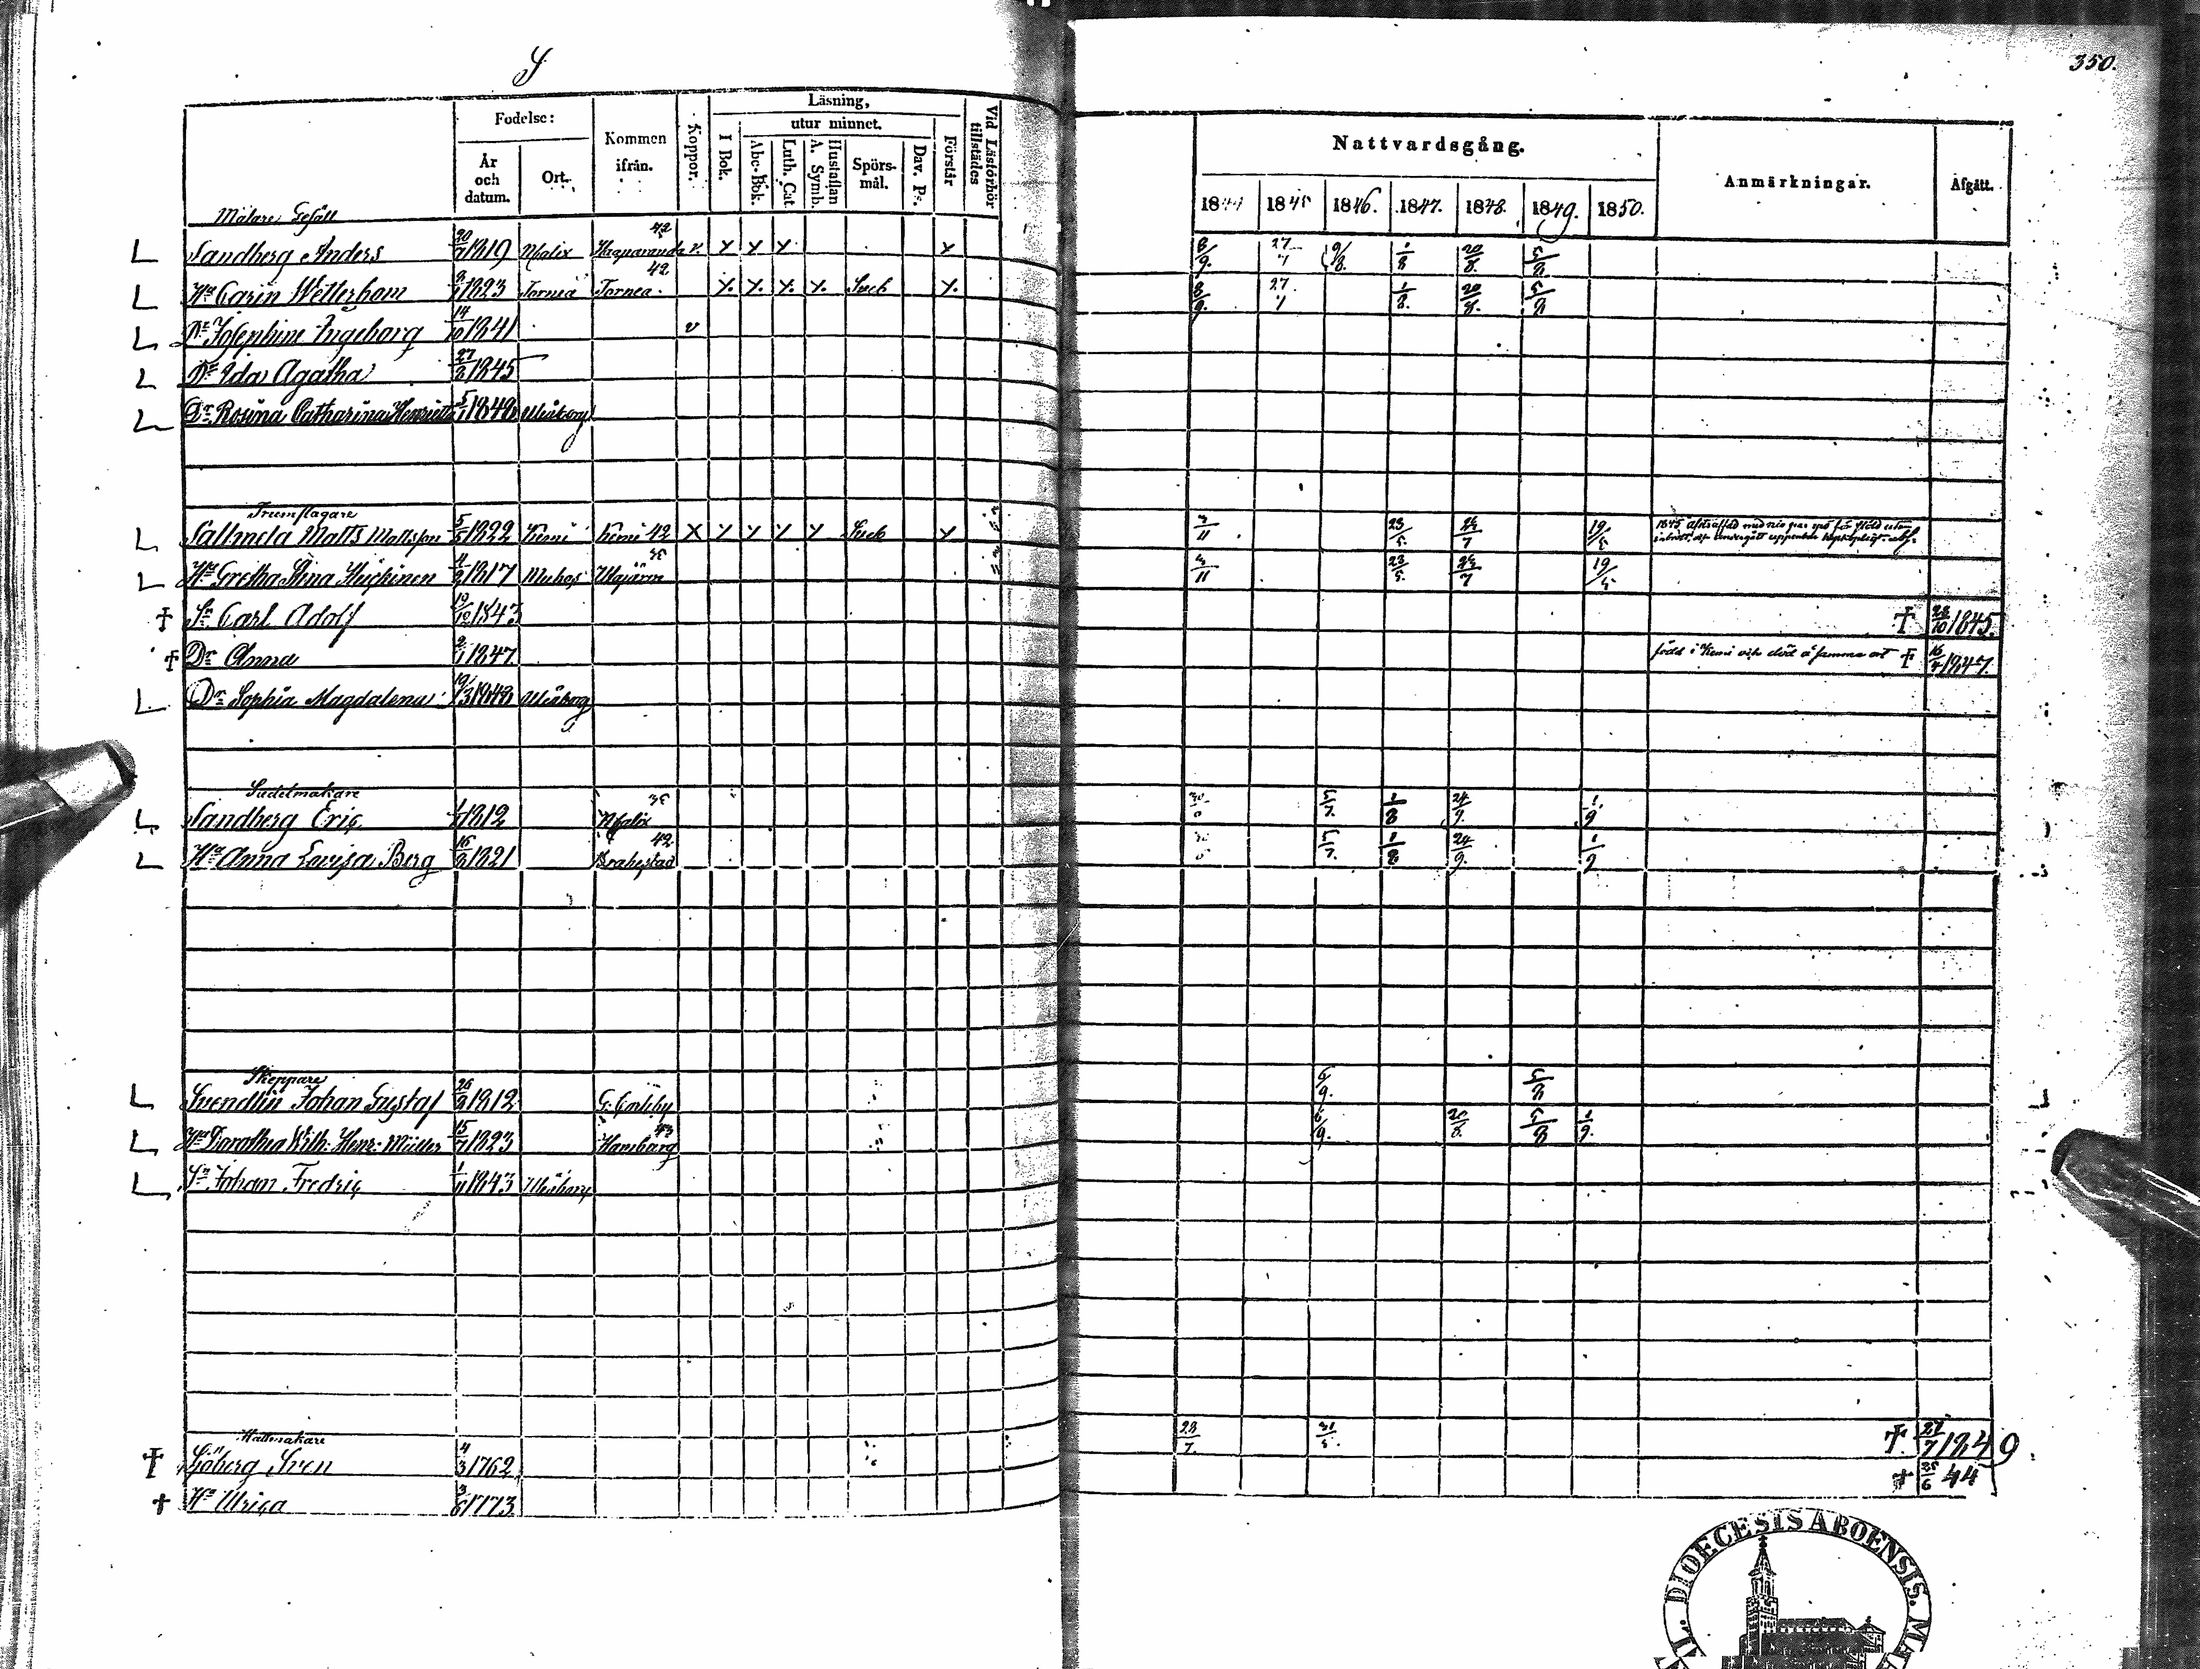 S
350.
Födelse:
År och datum.
Ort.
Kommen ifrån.
Koppor.
Läsning,
I Bok.
utur minnet.
Abc-Bok.
Luth. Cat.
Hustaflan A. Symb.
Spörs-mål.
Dav. Ps.
Förstår
Vid Läsförhör tillstädes
Nattvardsgång.
1844 1845 1846. 1847. 1848. 1849. 1850.
Anmärkningar.
Afgått.
Målare Gesäll 42
L Sandberg Anders 20/7 1819 NCalix Haparanda v. x x x x 8/9. 27/7 9/8. 1/8 20/8. 5/8
42
L Hu Carin Wetterhom 1823 Torneå Torneå x. x. x. x. Sueb x. 8/9. 27/7 1/8. 20/8. 5/8
L Dr Josephine Ingeborg 14/10 1841 v
L Dr Ida Agatha 27/8 1845
L Dr Rosina Catharina Henrietta 5/1 1848 Uleåborg
L Sallmela Matts Mattsson 5/5 1822 Kemi Kemi 42 x x x x x Sueb x 23/5 24/7 19/5
L Hu Gretha Stina 1817 Muhos 23/5. 24/7 19/5
† Sn Carl Adolf 19/12 1843 † 28/10 1845.
† Dr Anna 2/1 1847 född i Kemi och död å samma ort † 16/4 1847.
L Dr Sophia Magdalena 19/3 1848 Uleåborg
Sadelmakare
L Sandberg Eric 1812 NCalix 5/7. 1/8 24/9. 1/9
42
L Hu Anna Lovisa Berg 16/8 1821 Brahestad 5/7. 1/8 24/9. 1/9
Skeppare
L Svendlin Johan Gustaf 26/8 1812 6/9. 5/8
43
L Hu Dorothea Wilh. Henr. Müller 15/7 1823 Hamburg 6/9. 20/8. 5/8 1/9.
L Sn Johan Fredric 1/11 1843 Uleåborg
Hattmakare
† Sjöberg Sven 4/3 1762 28/7. 31/5. † 27/7 1849
† Hu Ulrica 3/6 1773. † 25/6 44
DIOECESIS ABOENSIS.